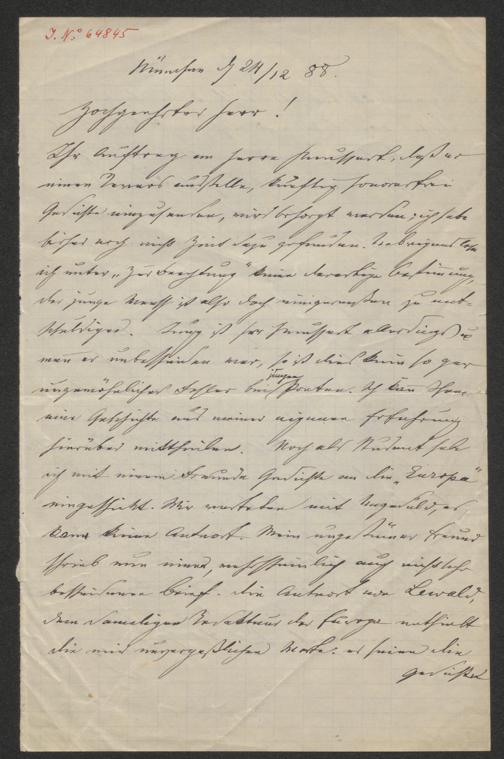 J. N. 64845
München d 24/12 88.
Hochgeehrter Herr!
Ihr Auftrag an Herrn, daß er
einen Revers ausstelle, künftig honorarfrei
Gedichte einzusenden, wird besorgt werden; ich habe
bisher noch nicht Zeit dazu gefunden. Uebrigens lese
ich unter „Zur Beachtung" keine derartige Bestimmung,
der junge Mensch ist also doch einigermaßen zu ent-
schuldigen. Jung ist Herr allerdings u
wenn er unbescheiden war, so ist dies kein so gar
ungewöhnlicher Fehler bei jungen Poeten. Ich kann Ihnen
eine Geschichte aus meiner eigenen Erfahrung
hierüber mittheilen. Noch als Student habe
ich mit einem Freunde Gedichte an die „Europa"
eingeschickt. Wir warteten mit Ungeduld, es
kam keine Antwort. Mein ungestümer Freund
schrieb nun einen, wahrscheinlich auch nicht sehr
bescheidenen Brief. Die Antwort von Lewald,
dem damaligen Redakteur der Europa enthielt
die mir unvergeßlichen Worte: es seien die
Gedichte